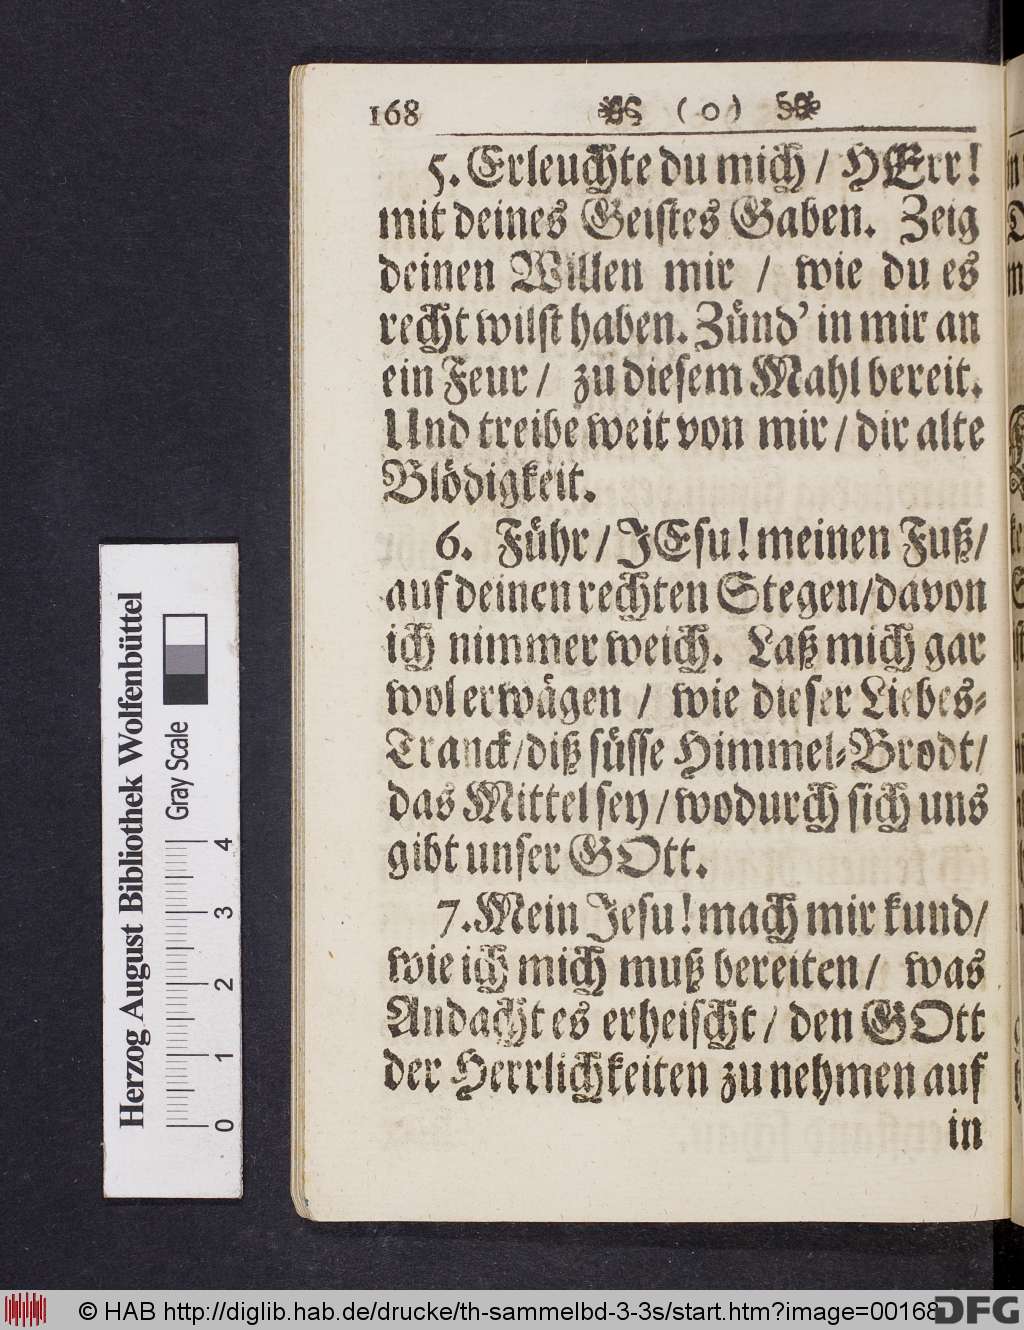 168 ( o )
5. Erleuchte du mich / HErr!
mit deines Geistes Gaben. Zeig
deinen Willen mir / wie du es
recht wilst haben. Zünd' in mir an
ein Feur / zu diesem Mahl bereit.
Und treibe weit von mir / dir alte
Blödigkeit.
6. Führ / JEsu! meinen Fuß /
auf deinen rechten Stegen / davon
ich nimmer weich. Laß mich gar
wol erwägen / wie dieser Liebes-
Tranck / diß süsse Himmel-Brodt /
das Mittel sey / wodurch sich uns
gibt unser GOtt.
7. Mein Jesu! mach mir kund /
wie ich mich muß bereiten / was
Andacht es erheischt / den GOtt
der Herrlichkeiten zu nehmen auf
in
Herzog August Bibliothek Wolfenbüttel
Gray Scale
0 1 2 3 4
© HAB http://diglib.hab.de/drucke/th-sammelbd-3-3s/start.htm?image=00168
DFG